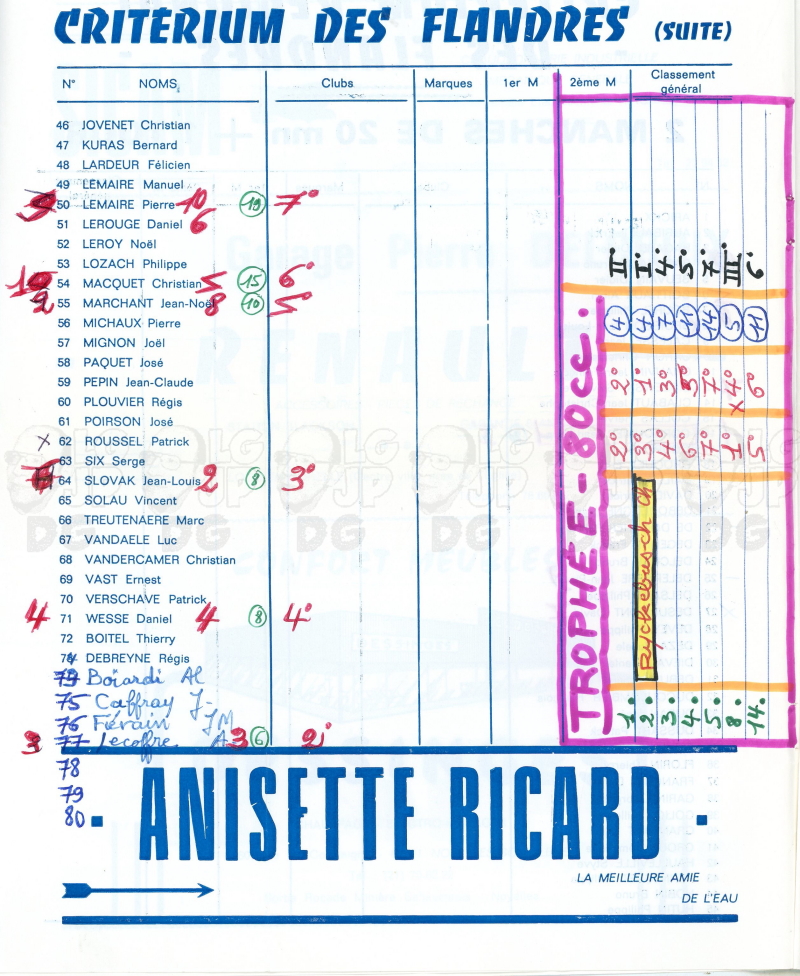 CRITÉRIUM DES FLANDRES (SUITE)
N° NOMS Clubs Marques 1er M 2ème M Classement général
46 JOVENET Christian
47 KURAS Bernard
48 LARDEUR Félicien
49 LEMAIRE Manuel
50 LEMAIRE Pierre 10 19 7°
51 LEROUGE Daniel 6
52 LEROY Noël
53 LOZACH Philippe
54 MACQUET Christian 5 15 6°
2 55 MARCHANT Jean-Noël 8 10 5°
56 MICHAUX Pierre
57 MIGNON Joël
58 PAQUET José
59 PEPIN Jean-Claude
60 PLOUVIER Régis
61 POIRSON José
X 62 ROUSSEL Patrick
63 SIX Serge
64 SLOVAK Jean-Louis 2 8 3°
65 SOLAU Vincent
66 TREUTENAERE Marc
67 VANDAELE Luc
68 VANDERCAMER Christian
69 VAST Ernest
70 VERSCHAVE Patrick
4 71 WESSE Daniel 4 8 4°
72 BOITEL Thierry
DEBREYNE Régis
Boiardi Al
75 Caffray J-
76 Fiérain JM
3 77 Lecoffre A 3 6 2°
78
79
80
TROPHÉE - 80cc.
1. 2° 2° 4 II.
2. Ryckebusch Ch 3° 1° 4 I.
3. 4° 3° 7 4.
4. 6° 5.
5. 7° 7° 14 7.
8. 1° x 4° 5 III.
14. 5° 6° 11 6.
ANISETTE RICARD
LA MEILLEURE AMIE
DE L'EAU
LG
JP
DG
LG
JP
DG
LG
JP
DG
LG
JP
DG
LG
JP
DG
LG
JP
DG